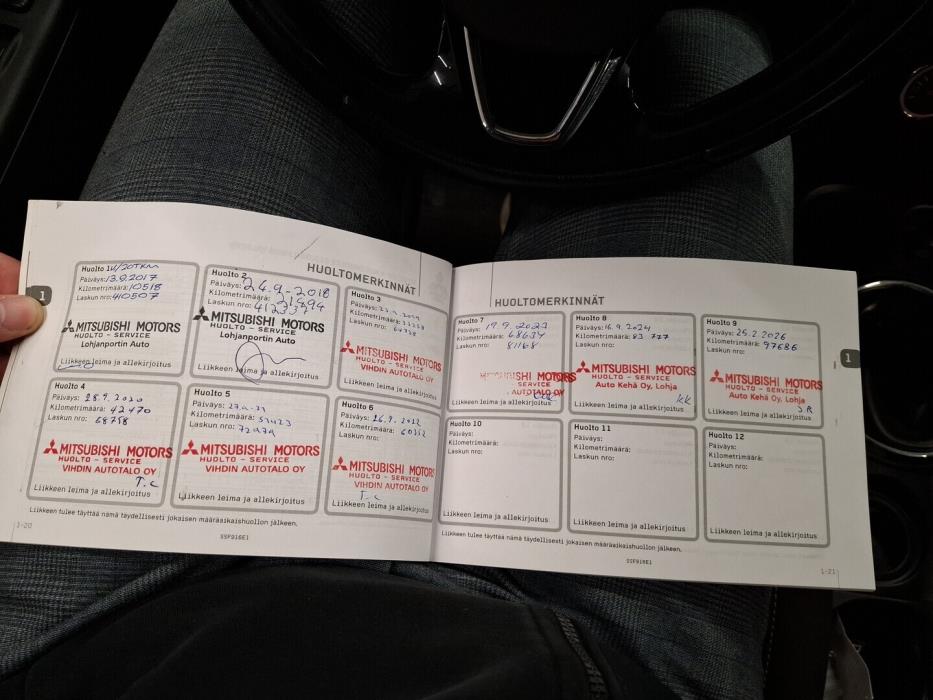 HUOLTOMERKINNÄT
Huolto 1
Päiväys: 13.9.2017
Kilometrimäärä: 10518
Laskun nro: 410507
MITSUBISHI MOTORS
HUOLTO - SERVICE
Lohjanportin Auto
Liikkeen leima ja allekirjoitus
Huolto 2
Päiväys: 24.9-2018
Kilometrimäärä: 21994
Laskun nro:
MITSUBISHI MOTORS
HUOLTO - SERVICE
Lohjanportin Auto
Liikkeen leima ja allekirjoitus
Huolto 3
Päiväys:
Kilometrimäärä:
Laskun nro:
MITSUBISHI MOTORS
HUOLTO - SERVICE
VIHDIN AUTOTALO OY
Liikkeen leima ja allekirjoitus
Huolto 4
Päiväys: 28.9.2020
Kilometrimäärä: 42470
Laskun nro: 68758
MITSUBISHI MOTORS
HUOLTO - SERVICE
VIHDIN AUTOTALO OY
T.C
Liikkeen leima ja allekirjoitus
Huolto 5
Päiväys:
Kilometrimäärä:
Laskun nro:
MITSUBISHI MOTORS
HUOLTO - SERVICE
VIHDIN AUTOTALO OY
Liikkeen leima ja allekirjoitus
Huolto 6
Päiväys:
Kilometrimäärä:
Laskun nro:
MITSUBISHI MOTORS
HUOLTO - SERVICE
VIHDIN AUTOTALO OY
T.C
Liikkeen leima ja allekirjoitus
Liikkeen tulee täyttää nämä täydellisesti jokaisen määräaikaishuollon jälkeen.
1-20
SSF916E1
HUOLTOMERKINNÄT
Huolto 7
Päiväys: 19.9.2023
Kilometrimäärä: 68637
Laskun nro: 81168
MITSUBISHI MOTORS
SERVICE
AUTOTALO OY
Liikkeen leima ja allekirjoitus
Huolto 8
Päiväys: 16.9.2024
Kilometrimäärä: 83 777
Laskun nro:
MITSUBISHI MOTORS
HUOLTO - SERVICE
Auto Kehä Oy, Lohja
KK
Liikkeen leima ja allekirjoitus
Huolto 9
Päiväys: 25.2.2026
Kilometrimäärä: 97686
Laskun nro:
MITSUBISHI MOTORS
HUOLTO - SERVICE
Auto Kehä Oy, Lohja
Liikkeen leima ja allekirjoitus
Huolto 10
Päiväys:
Kilometrimäärä:
Laskun nro:
Liikkeen leima ja allekirjoitus
Huolto 11
Päiväys:
Kilometrimäärä:
Laskun nro:
Liikkeen leima ja allekirjoitus
Huolto 12
Päiväys:
Kilometrimäärä:
Laskun nro:
Liikkeen leima ja allekirjoitus
Liikkeen tulee täyttää nämä täydellisesti jokaisen määräaikaishuollon jälkeen.
SSF916E1
1-21
1
1